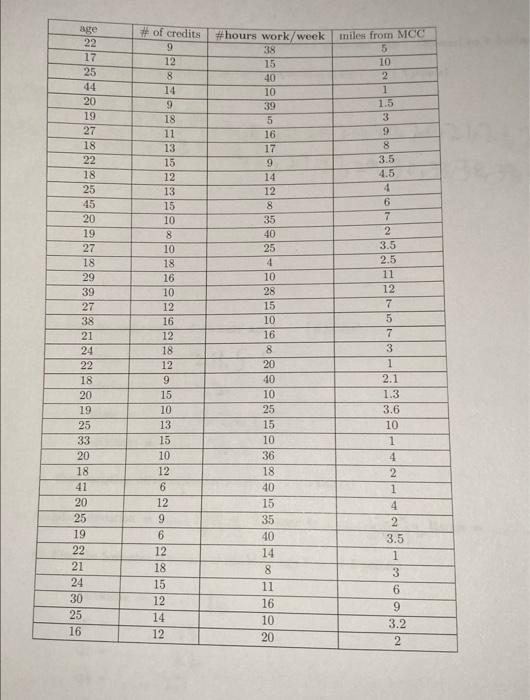 age # of credits #hours work/week miles from MCC
22 9 38 5
17 12 15 10
25 8 40 2
44 14 10 1
20 9 39 1.5
19 18 5 3
27 11 16 9
18 13 17 8
22 15 9 3.5
18 12 14 4.5
25 13 12 4
45 15 8 6
20 10 35 7
19 8 40 2
27 10 25 3.5
18 18 4 2.5
29 16 10 11
39 10 28 12
27 12 15 7
38 16 10 5
21 12 16 7
24 18 8 3
22 12 20 1
18 9 40 2.1
20 15 10 1.3
19 10 25 3.6
25 13 15 10
33 15 10 1
20 10 36 4
18 12 18 2
41 6 40 1
20 12 15 4
25 9 35 2
19 6 40 3.5
22 12 14 1
21 18 8 3
24 15 11 6
30 12 16 9
25 14 10 3.2
16 12 20 2